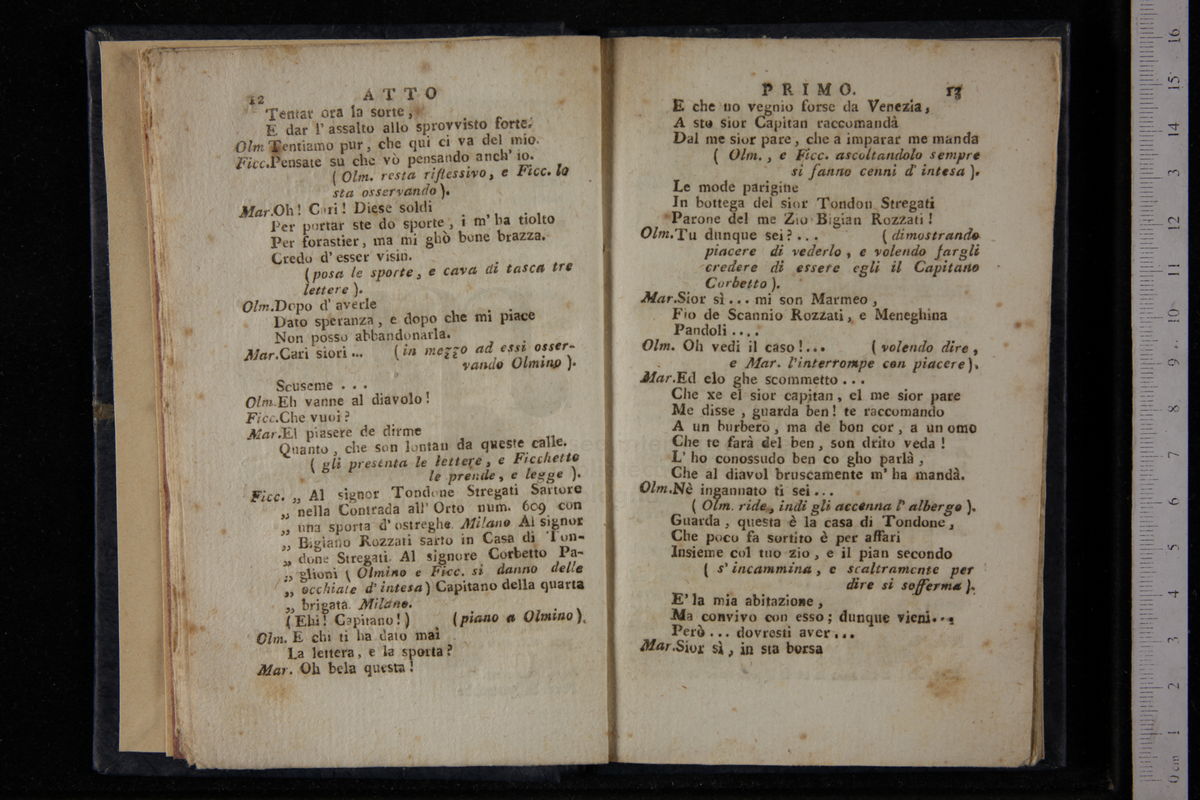 12 ATTO
Tentar ora la sorte,
E dar l' assalto allo sprovvisto forte.
Olm Tentiamo pur, che qui ci va del mio.
Ficc.Pensate su che vò pensando anch' io.
( Olm. resta riflessivo, e Ficc. lo
sta osservando ).
Mar.Oh! Cari! Diese soldi
Per portar ste do sporte, i m' ha tiolto
Per forastier, ma mi ghò bone brazza.
Credo d' esser visin.
(posa le sporte, e cava di tasca tre
lettere ).
Olm.Dopo d' averle
Dato speranza, e dopo che mi piace
Non posso abbandonarla.
Mar.Cari siori... (in mezzo ad essi osser-
vando Olmino ).
Scuseme ...
Olm.Eh vanne al diavolo!
Ficc.Che vuoi?
Mar.El piasere de dirme
Quanto, che son lontan da queste calle.
( gli presenta le lettere, e Ficchetto
le prende, e legge ).
Ficc. „ Al signor Tondone Stregati Sartore
„ nella Contrada all' Orto num. 609 con
„ una sporta d' ostreghe. Milano Al signor
„ Bigiano Rozzati sarto in Casa di Ton-
„ done Stregati. Al signore Corbetto Pa-
„ glioni ( Olmino e Ficc. si danno delle
„ occhiate d' intesa ) Capitano della quarta
„ brigata. Milano.
( Ehi! Capitano! ) (piano a Olmino ).
Olm. E chi ti ha dato mai
La lettera, e la sporta?
Mar. Oh bela questa!
PRIMO. 13
E che no vegnio forse da Venezia,
A sto sior Capitan raccomandà
Dal me sior pare, che a imparar me manda
( Olm., e Ficc. ascoltandolo sempre
si fanno cenni d' intesa ).
Le mode parigine
In bottega del sior Tondon Stregati
Parone del me Zio Bigian Rozzati!
Olm.Tu dunque sei?... ( dimostrando
piacere di vederlo, e volendo fargli
credere di essere egli il Capitano
Corbetto ).
Mar.Sior sì... mi son Marmeo,
Fio de Scannio Rozzati, e Meneghina
Pandoli....
Olm. Oh vedi il caso!... ( volendo dire,
e Mar. l'interrompe con piacere ).
Mar.Ed elo ghe scommetto...
Che xe el sior capitan, el me sior pare
Me disse, guarda ben! te raccomando
A un burbero, ma de bon cor, a un omo
Che te farà del ben, son drito veda!
L' ho conossudo ben co gho parlà,
Che al diavol bruscamente m' ha mandà.
Olm.Nè ingannato ti sei...
( Olm. ride, indi gli accenna l' albergo ).
Guarda, questa è la casa di Tondone,
Che poco fa sortito è per affari
Insieme col tuo zio, e il pian secondo
( s' incammina, e scaltramente per
dire si sofferma ).
E' la mia abitazione,
Ma convivo con esso; dunque vieni...
Però... dovresti aver...
Mar.Sior sì, in sta borsa